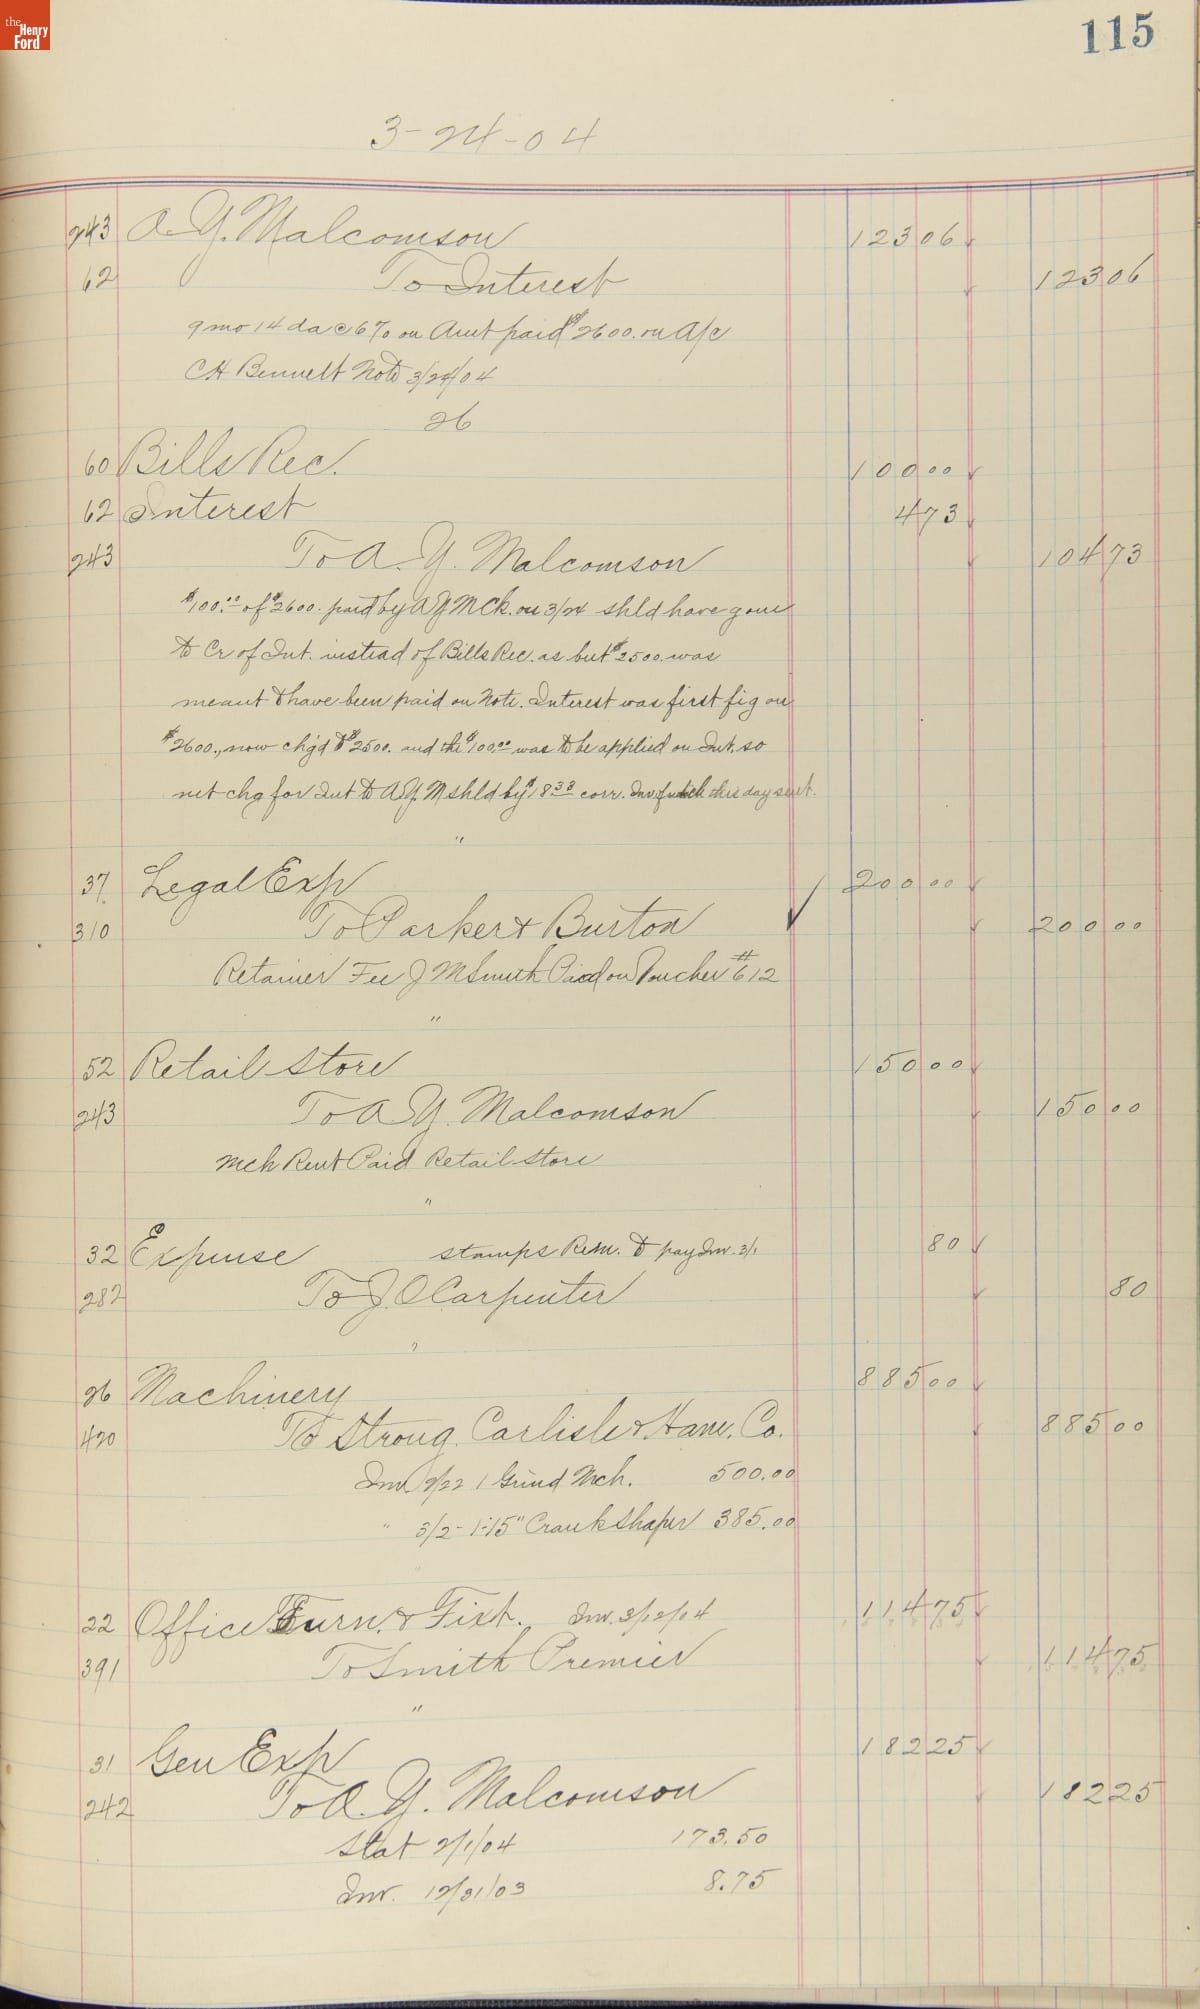 the Henry Ford
115
3-24-04
243 A. Y. Malcomson 123 06
62 To Interest 123 06
9 mo 14 da @ 6% on Amt paid $2600. on A/c
CH Bennett Note 3/24/04
26
60 Bills Rec. 100 00
62 Interest 4 73
243 To A. Y. Malcomson 104 73
$100.00 of $2600. paid by A Y McK. on 3/24 shld have gone
to Cr of Int. instead of Bills Rec. as but $2500. was
meant to have been paid on Note. Interest was first fig on
$2600., now chg'd to $2500. and the $100.00 was to be applied on Int. so
net chg for Int to A. Y. M shld by $18 33 corr. Inv of which this day sent.
"
37 Legal Exp 200 00
310 To Parker & Burton 200 00
Retainer Fee J M Smith Paid on Voucher #612
"
52 Retail Store 150 00
243 To A Y. Malcomson 150 00
Mch Rent Paid Retail Store
"
32 Expense stamps Rem. to pay Inv. 3/1 80
282 To J. O Carpenter 80
"
26 Machinery 885 00
420 To Strong. Carlisle & Ham. Co. 885 00
Inv. 2/22 1 Grind Mch. 500.00
" 3/2 - 1-15" Crank Shaper 385.00
22 Office Furn. & Fixt. Inv. 3/12/04 114 75
391 To Smith Premier 114 75
"
31 Gen Exp 182 25
242 To A. Y. Malcomson 182 25
Stat 2/1/04 173.50
Inv. 12/31/03 8.75